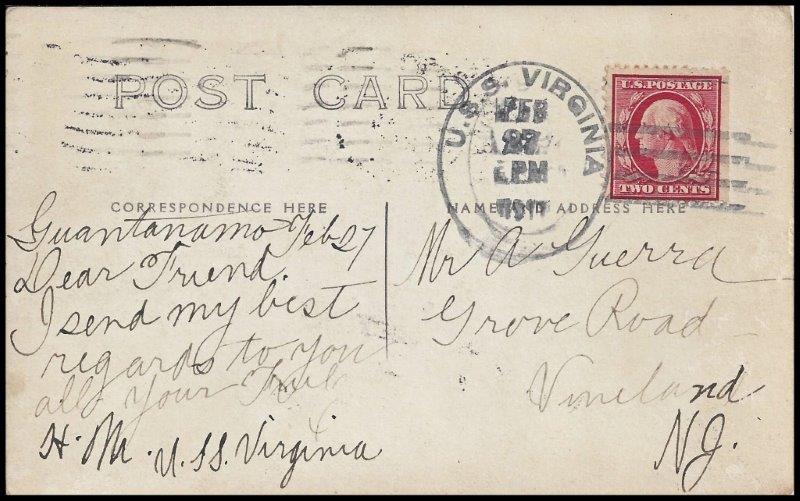 POST CARD
U.S.S. VIRGINIA
FEB
27
PM
U.S. POSTAGE
TWO CENTS
CORRESPONDENCE HERE
NAME AND ADDRESS HERE
Guantanamo Feb 27
Dear Friend.
I send my best
regards to you
all Your
H. M. U.S.S. Virginia
Mr A Guerra
Grove Road
Vineland
N.J.